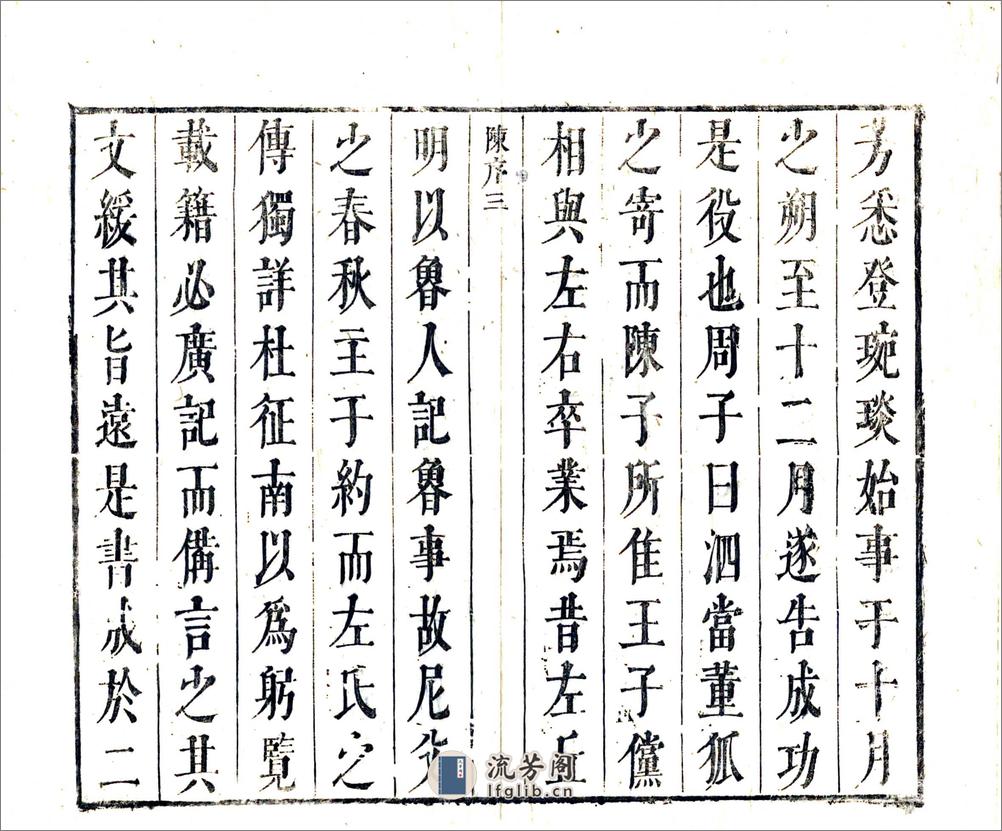 芳悉登琬琰始事于十月
之朔至十二月遂告成功
是役也周子曰泗當董狐
之寄而陳子所隹王子儻
相與左右卒業焉昔左丘
陳序三
明以魯人記魯事故尼父
之春秋主于約而左氏之
傳獨詳杜征南以爲躬覽
載籍必廣記而備言之其
文緩其旨遠是書成於二
流芳阁
lfglib.cn